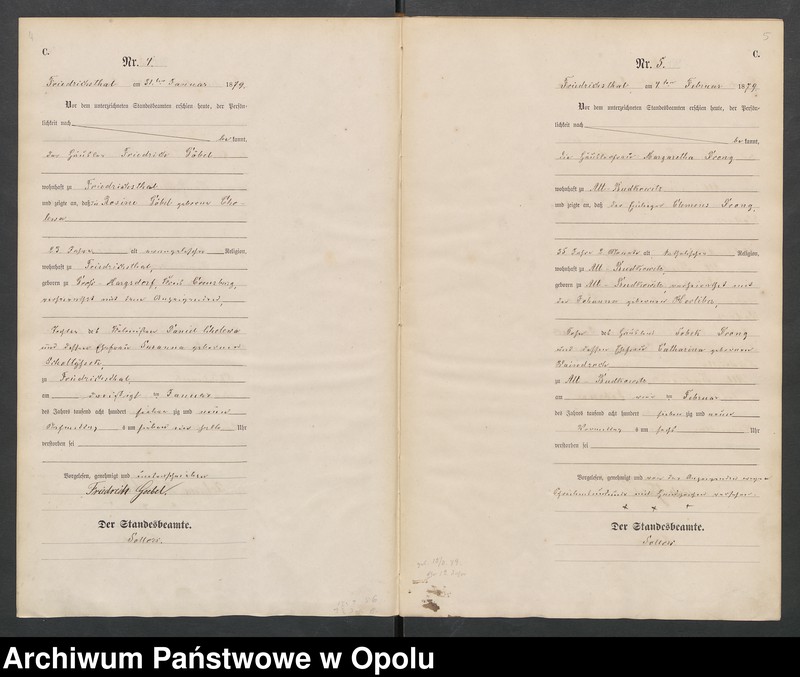 C.
Nr. 4
Friedrichsthal am 31ten Januar 1879.
Vor dem unterzeichneten Standesbeamten erschien heute, der Persön-
lichkeit nach
bekannt,
der Häusler Friedrich Göbel
wohnhaft zu Friedrichsthal
und zeigte an, daß die Rosine Göbel geborene Cho-
lewa
Jahre alt evangelischer Religion,
wohnhaft zu Friedrichsthal,
geboren zu Groß-Margsdorf, Kreis Creuzburg,
verheirathet mit dem Anzeigenden,
Tochter des Kolonisten Daniel Cholewa
und dessen Ehefrau Susanna geborenen
zu Friedrichsthal,
am dreißigsten Januar
des Jahres tausend acht hundert siebenzig und neun
Nachmittag s um sieben ein halb Uhr
verstorben sei
Vorgelesen, genehmigt und unterschrieben
Friedrich Goebel.
Der Standesbeamte.
5
C.
Nr. 5.
Friedrichsthal am 4ten Februar 1879.
Vor dem unterzeichneten Standesbeamten erschien heute, der Persön-
lichkeit nach
bekannt,
die Häuslerfrau Margaretha Kronz
wohnhaft zu Alt-Budkowitz
und zeigte an, daß der Clemens Kronz,
35 Jahre 2 Monate alt, katholischer Religion,
wohnhaft zu Alt-Budkowitz,
geboren zu Alt-Budkowitz, verheirathet mit
der Johanna geborenen
Sohn des Häuslers Kronz
und dessen Ehefrau Catharina geborenen
zu Alt-Budkowitz
am vier ten Februar
des Jahres tausend acht hundert siebenzig und neun
Vormittag s um sechs Uhr
verstorben sei
Vorgelesen, genehmigt und von der Anzeigenden wegen
Schreibunkunde mit Handzeichen versehen.
+ + +
Der Standesbeamte.
Archiwum Państwowe w Opolu